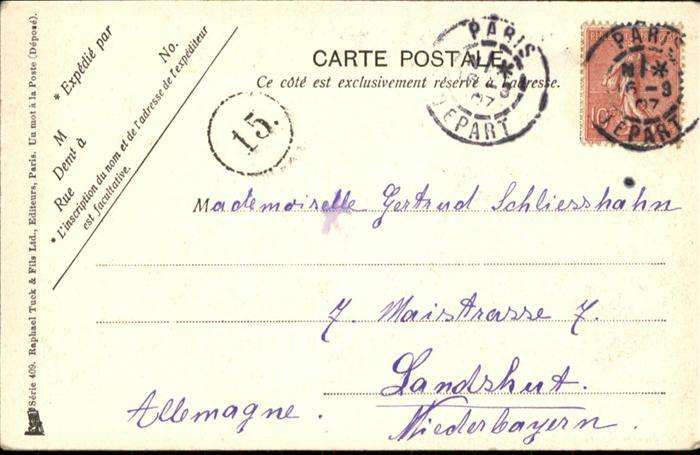 Série 409. Raphael Tuck & Fils Ltd., Editeurs, Paris. Un mot à la Poste (Déposé).
* Expédié par
No.
M
Demt à
Rue
* L'inscription du nom et de l'adresse de l'expéditeur
est facultative.
CARTE POSTALE
Ce côté est exclusivement réservé à l'adresse.
PARIS
6 - 3
07
DEPART
PARIS
6 - 3
07
DEPART
10
15.
Mademoiselle Gertrud Schliesshahn
7. Maistrasse 7.
Landshut.
Allemagne.
Niederbayern.